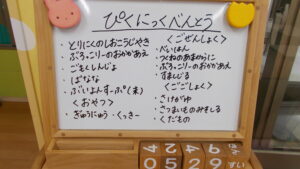 ぴくにっくべんとう
・とりにくのしおこうじやき
・ぶろっこりーのおかかあえ
・ごもくしんじょ
・ばなな
・ぶいよんすーぷ(末)
<おやつ>
・ぎゅうにゅう・くっきー
<ごぜんしょく>
・べいはん
・つくねのあまからに
・ぶろっこりーのおかかあえ
・すましじる
<ごごしょく>
・さけがゆ
・さつまいものみそしる
・くだもの
4 2 2 9
0 5 2 6 すい